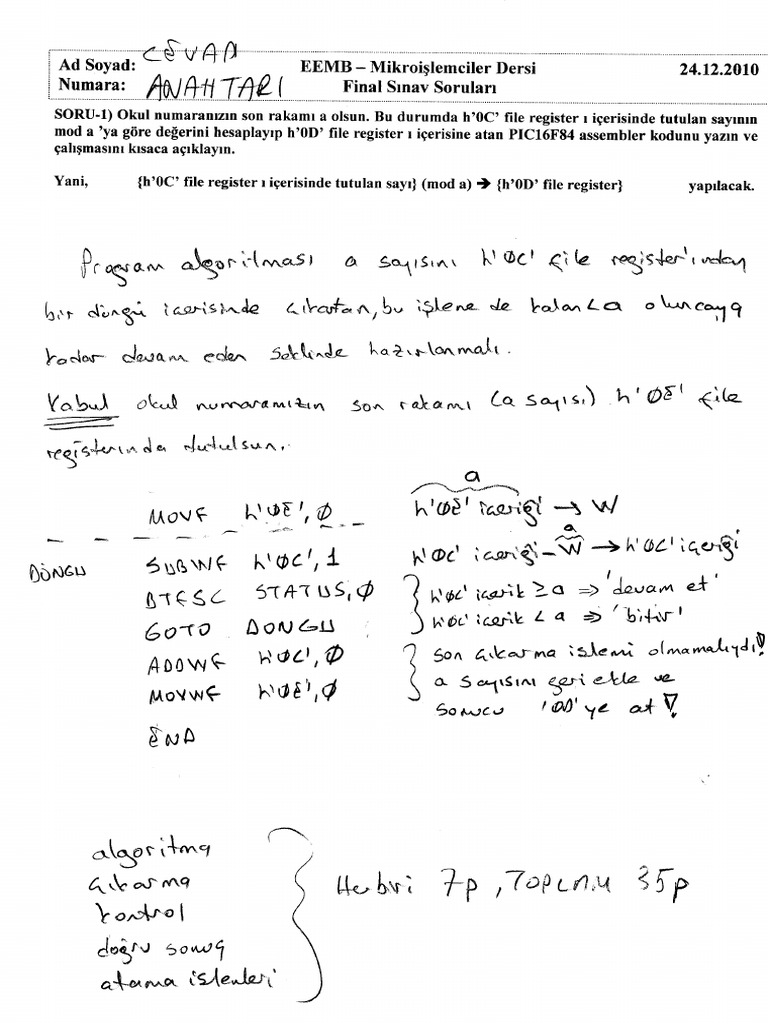 Ad Soyad: CEVAP
EEMB – Mikroişlemciler Dersi
24.12.2010
Numara: ANAHTARI
Final Sınav Soruları
SORU-1) Okul numaranızın son rakamı a olsun. Bu durumda h'0C' file register ı içerisinde tutulan sayının
mod a 'ya göre değerini hesaplayıp h'0D' file register ı içerisine atan PIC16F84 assembler kodunu yazın ve
çalışmasını kısaca açıklayın.
Yani, {h'0C' file register ı içerisinde tutulan sayı} (mod a) ➔ {h'0D' file register} yapılacak.
Program algoritması a sayısını h'0C' file register'ından
bir döngü içerisinde çıkartan, bu işleme de kalan<a oluncaya
kadar devam eden şeklinde hazırlanmalı.
Kabul okul numaramızın son rakamı (a sayısı) h'0E' file
registerında tutulsun.
a
MOVF h'0E',0 h'0E' içeriği → W
a
DÖNGU SUBWF h'0C',1 h'0C' içeriği - W → h'0C' içeriği
BTFSC STATUS,0 h'0C' içerik ≥ a => 'devam et'
GOTO DONGU h'0C' içerik < a => 'bitir'
ADDWF h'0C',0 son çıkarma işlemi olmamalıydı!
MOVWF h'0E',0 a sayısını geri ekle ve
sonucu '0D' ye at!
END
algoritma
çıkarma
kontrol
doğru sonuç
atama işlemleri
Herbiri 7p, TOPLAM 35p